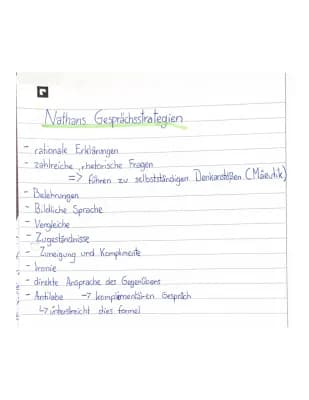 Nathans Gesprächsstrategien
- rationale Erklärungen
- zahlreiche rhetorische Fragen
=> führen zu selbstständigen Denkanstößen (Mäeutik)
- Belehrungen
- Bildliche Sprache
- Vergleiche
- Zugeständnisse
- Zuneigung und Komplimente
- Ironie
- direkte Ansprache des Gegenübers
- Antilabe -> komplementären Gespräch
↳ unterstreicht dies formel